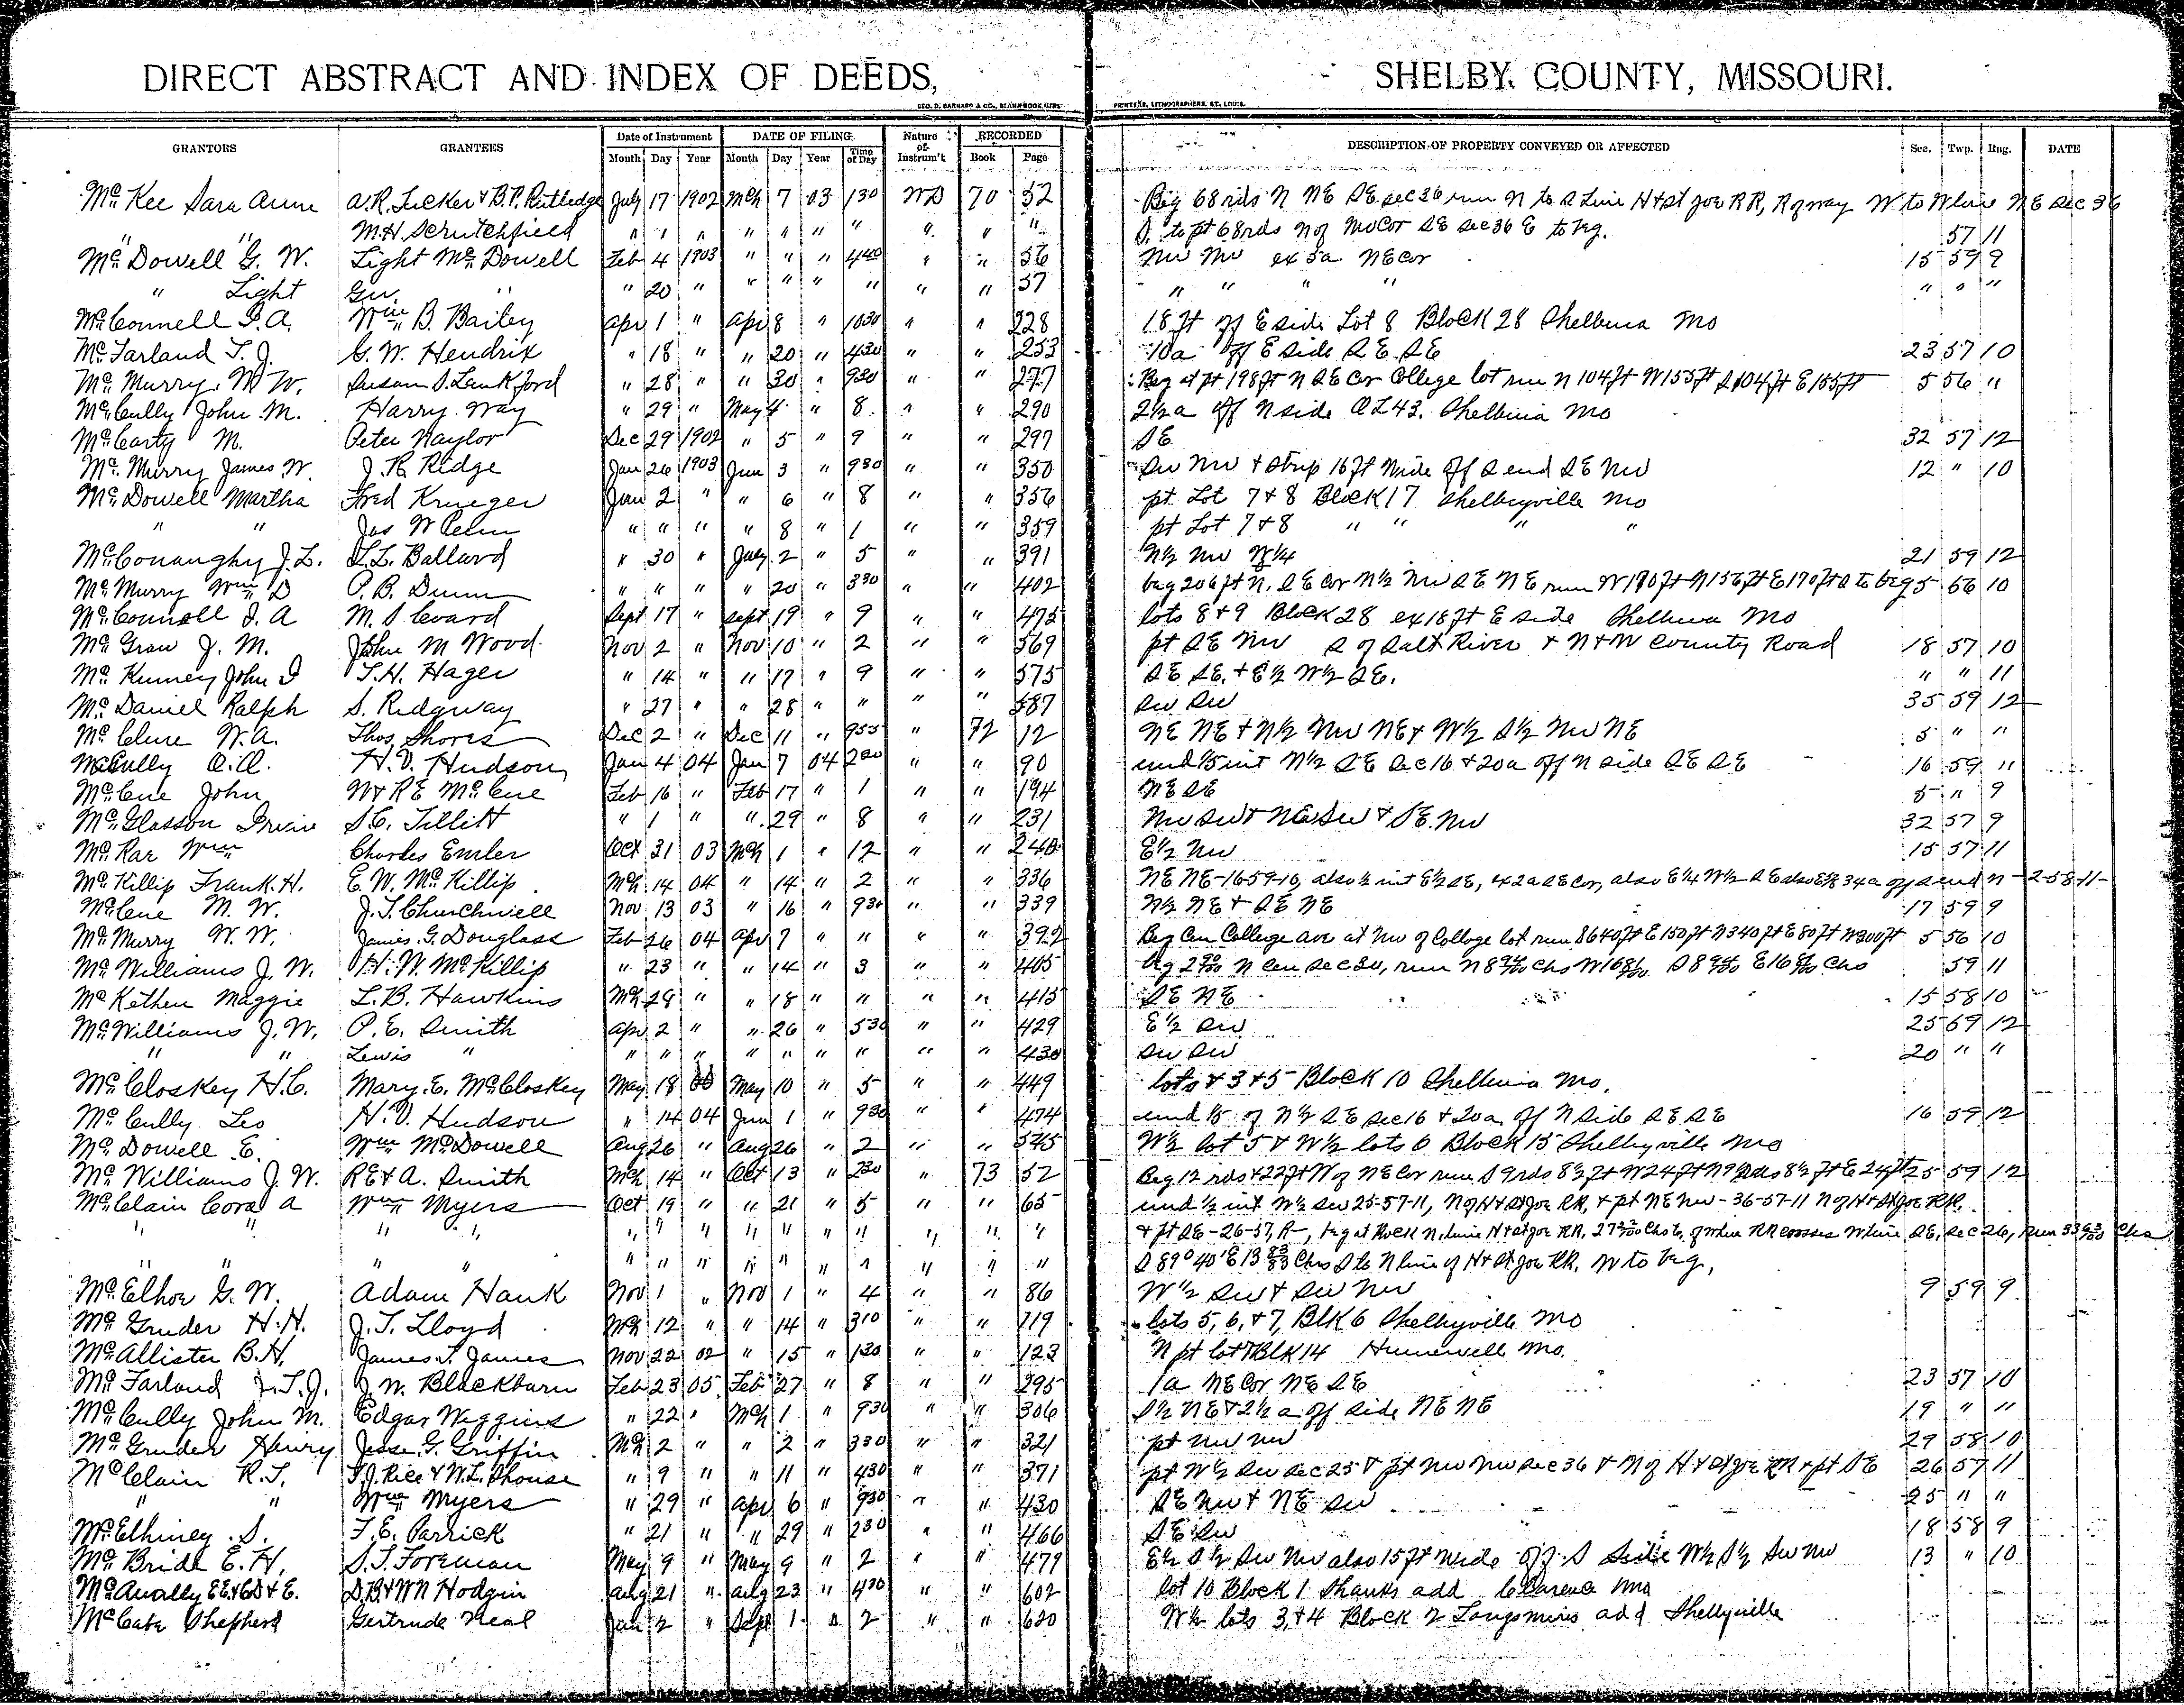 DIRECT ABSTRACT AND INDEX OF DEEDS, SHELBY COUNTY, MISSOURI.
GEO. D. BARNARD & CO., BLANK BOOK MFRS PRINTERS, LITHOGRAPHERS, ST. LOUIS.
GRANTORS GRANTEES Date of Instrument DATE OF FILING Nature of Instrum't RECORDED DESCRIPTION OF PROPERTY CONVEYED OR AFFECTED Sec. Twp. Rng. DATE
Month Day Year Month Day Year Time of Day Book Page
McKee Sara Anne A.R. Tucker & B.P. Rutledge July 17 1902 Mch 7 03 130 WD 70 52 Beg 68 rds N NE SE sec 36 run N to S Line H & St Joe RR, R of way W to W line NE sec 36
" " M.H. Scrutchfield " " " " " " " " " " S. to pt 68 rds N of Cor SE sec 36 E to beg. 57 11
McDowell G. W. Light McDowell Feb 4 1903 " " " 440 " " 56 NW NW ex 5a NE Cor 15 59 9
" Light G.W. " " 20 " " " " " " " 57 " " " " " " "
McConnell J.A. Wm B. Bailey Apr 1 " Apr 8 " 1030 " " 228 18 ft off E side Lot 8 Block 28 Shelbina Mo
McFarland T. J. G. W. Hendrix " 18 " " 20 " 430 " " 253 10a off E side SE SE 23 57 10
McMurry W. Susan S. Lankford " 28 " " 30 " 930 " " 277 Beg at pt 198 ft N SE Cor College lot run N 104 ft W 155 ft S 104 ft E 155 ft 5 56 "
McCully John M. Harry Way " 29 " May 4 " 8 " " 290 2½ a off N side OL 43. Shelbina Mo
McCarty M. Peter Naylor Dec 29 1902 " 5 " 9 " " 297 SE 32 57 12
McMurry James W. J. R. Ridge Jan 26 1903 Jun 3 " 930 " " 350 SW NW & Strip 16 ft wide off S end SE NW 12 " 10
McDowell Martha Fred Krueger Jun 2 " " 6 " 8 " " 356 pt Lot 7 & 8 Block 17 Shelbyville Mo
" " Jas W Penn " " " " 8 " 1 " " 359 pt Lot 7 & 8 " " " "
McConaughy J.L. L.L. Ballard " 30 " July 2 " 5 " " 391 N½ NW 21 59 12
McMurry Wm D P. B. Dunn " " " " 20 " 330 " " 402 beg 206 ft N. SE Cor N½ NW SE NE run W 170 ft N 156 ft E 170 ft S to beg 5 56 10
McConnell J. A M. S. Evard Sept 17 " Sept 19 " 9 " " 475 lots 8 & 9 Block 28 ex 18 ft E side Shelbina Mo
McGraw J. M. John M Wood Nov 2 " Nov 10 " 2 " " 569 pt SE NW S of Salt River & N & W County Road 18 57 10
McKinney John J T.H. Hager " 14 " " 17 " 9 " " 575 SE SE. & E½ W½ SE. " " 11
McDaniel Ralph S. Ridgway " 27 " " 28 " " " " 587 SW SW 35 59 12
McClure W.A. Thos Shores Dec 2 " Dec 11 " 955 " 72 12 NE NE & N½ NW NE & W½ S½ NW NE 5 " "
McCully O.O. H.V. Hudson Jan 4 04 Jan 7 04 200 " " 90 und 1/5 int N½ SE Sec 16 & 20a off N side SE SE 16 59 "
McCue John W & R E McCue Feb 16 " Feb 17 " 1 " " 194 NE SE 5 " 9
McGlasson Irvin S.C. Tillitt " 1 " " 29 " 8 " " 231 NW SW & NE SW & SE NW 32 57 9
McRae Wm Charles Emler Oct 31 03 Mch 1 " 12 " " 240 E½ NW 15 57 11
McKillip Frank. H. E.W. McKillip Mch 14 04 " 14 " 2 " " 336 NE NE-16-59-10, also ½ int E½ SE, ex 2a SE Cor, also E¼ W½ SE also 34a off S end 2-58-11
McCue M. W. J.T. Churchwell Nov 13 03 " 16 " 930 " " 339 N½ NE & SE NE 17 59 9
McMurry W. W. James. G. Douglass Feb 26 04 Apr 7 " " " " 392 Beg Cen College ave at NW of College lot run S 640 ft E 150 ft N 340 ft E 80 ft N 300 ft 5 56 10
McWilliams J. W. H. W. McKillip " 23 " " 14 " 3 " " 405 59 11
McKethen Maggie L.B. Hawkins Mch 28 " " 18 " " " " 415 SE NE 15 58 10
McWilliams J.W. P.E. Smith Apr 2 " " 26 " 530 " " 429 E½ SW 25 59 12
" " Lewis " " " " " " " " " " 430 SW SW 20 " "
McCloskey H.C. Mary. E. McCloskey May 18 May 10 " 5 " " 449 lots 3 & 5 Block 10 Shelbina Mo.
McCully Leo H.V. Hudson " 14 04 Jun 1 " 930 " " 474 und 1/5 of N½ SE Sec 16 & 20a off N side SE SE 16 59 12
McDowell E. Wm McDowell Aug 26 " Aug 26 " 2 " " 545 W½ lot 5 & W½ lots 6 Block 15 Shelbyville Mo
McWilliams J. W. RE & A. Smith Mch 14 " Oct 13 " 230 " 73 52 Beg 12 rds & 22 ft W of NE Cor run S 9 rds 8½ ft W 24 ft N 9 rds 8½ ft E 24 ft 25 59 12
McClain Cora A Wm Myers Oct 19 " " 21 " 5 " " 65 und ½ int W½ SW 25-57-11, N of H & St Joe RR, & pt NE NW-36-57-11 N of H & St Joe RR.
" " " " " " " " " " " " " & pt SE-26-57, beg at Rock N. line H & St Joe RR, of where RR crosses W line SE, sec 26, run Chs
" " " " " " " " " " " " " S 89° 40' E 13 Chs S to N line of H & St Joe RR. W to beg,
McElhoe G. W. Adam Hank Nov 1 " Nov 1 " 4 " " 86 W½ SW & SW NW 9 59 9
McGruder H.H. J. T. Lloyd Mch 12 " " 14 " 310 " " 119 lots 5, 6, & 7, Blk 6 Shelbyville Mo
McAllister B.H. James. T. James Nov 22 02 " 15 " 130 " " 123 N pt lot Blk 14 Hunnewell Mo.
McFarland J.T.J. J. W. Blackburn Feb 23 05 Feb 27 " 8 " " 295 1a NE Cor NE SE 23 57 10
McCully John M. Edgar Wiggins " 22 " Mch 1 " 930 " " 306 S½ NE & 2½ a off side NE NE 19 " "
McGruder Henry Jesse. G. Griffin Mch 2 " " 2 " 330 " " 321 pt NW NW 29 58 10
McClain R.T. F.J. Rice & W.L. Shouse " 9 " " 11 " 430 " " 371 pt W½ SW Sec 25 & pt NW NW Sec 36 & N of H & St Joe RR & pt SE 26 57 11
" " Wm Myers " 29 " Apr 6 " 930 " " 430 SE NW & NE SW 25 " "
McElhiney S. F.E. Parrick " 21 " " 29 " 230 " " 466 SE SW 18 58 9
McBride E. H. S.T. Foreman May 9 " May 9 " 2 " " 479 E½ S½ SW NW also 15 ft wide off S side W½ S½ SW NW 13 " 10
McAnally EE & CD & E. D.B & WN Hodgin Aug 21 " Aug 23 " 430 " " 602 lot 10 Block 1 Shanks add Clarence Mo
McCabe Shepherd Gertrude Neal Jun 2 " Sept 1 " 2 " " 620 W½ lots 3 & 4 Block 2 Longsmires add Shelbyville